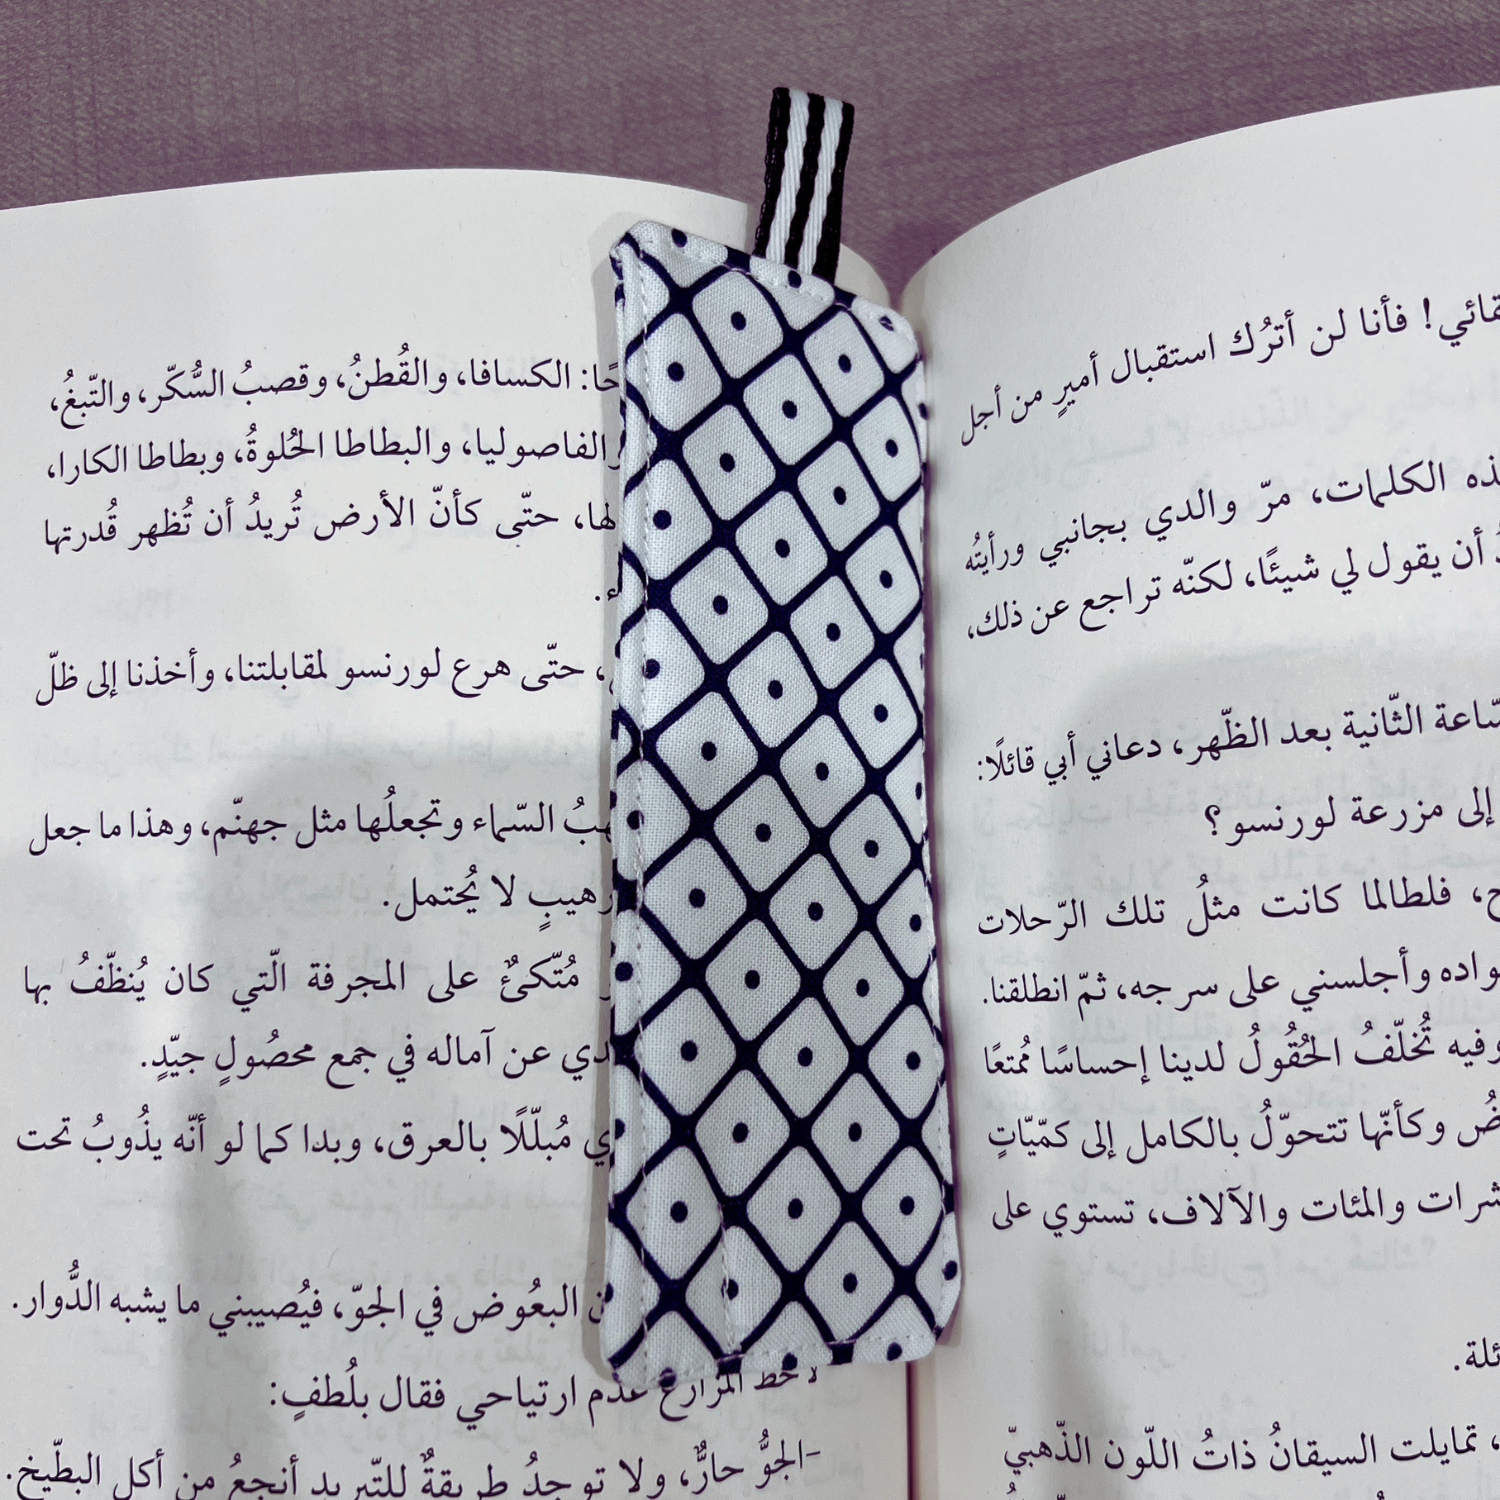 قائي! فأنا لن أترُك استقبال أميرٍ من أجل
الكلمات، مرّ والدي بجانبي ورأيتُه
أن يقول لي شيئًا، لكنّه تراجع عن ذلك،
الثّانية بعد الظّهر، دعاني أبي قائلًا:
إلى مزرعة لورنسو؟
فلطالما كانت مثلُ تلك الرّحلات
وأجلسني على سرجه، ثمّ انطلقنا.
وفيه تُخلّفُ الحُقُولُ لدينا إحساسًا مُمتعًا
وكأنّها تتحوّلُ بالكامل إلى كمّيّاتٍ
والمئات والآلاف، تستوي على
تمايلت السيقانُ ذاتُ اللّون الذّهبيّ
الكسافا، والقُطنُ، وقصبُ السُّكّر، والتّبغُ،
الفاصوليا، والبطاطا الحُلوةُ، وبطاطا الكارا،
حتّى كأنّ الأرض تُريدُ أن تُظهر قُدرتها
حتّى هرع لورنسو لمقابلتنا، وأخذنا إلى ظلّ
السّماء وتجعلُها مثل جهنّم، وهذا ما جعل
رهيبٍ لا يُحتمل.
مُتّكئٌ على المجرفة الّتي كان يُنظّفُ بها
عن آماله في جمع محصُولٍ جيّدٍ.
مُبلّلًا بالعرق، وبدا كما لو أنّه يذُوبُ تحت
البعُوض في الجوّ، فيُصيبني ما يشبه الدُّوار.
لاحظ المزارع عدم ارتياحي فقال بلُطفٍ:
-الجوُّ حارٌّ، ولا توجدُ طريقةٌ للتّبريد أنجعُ من أكل البطّيخ.